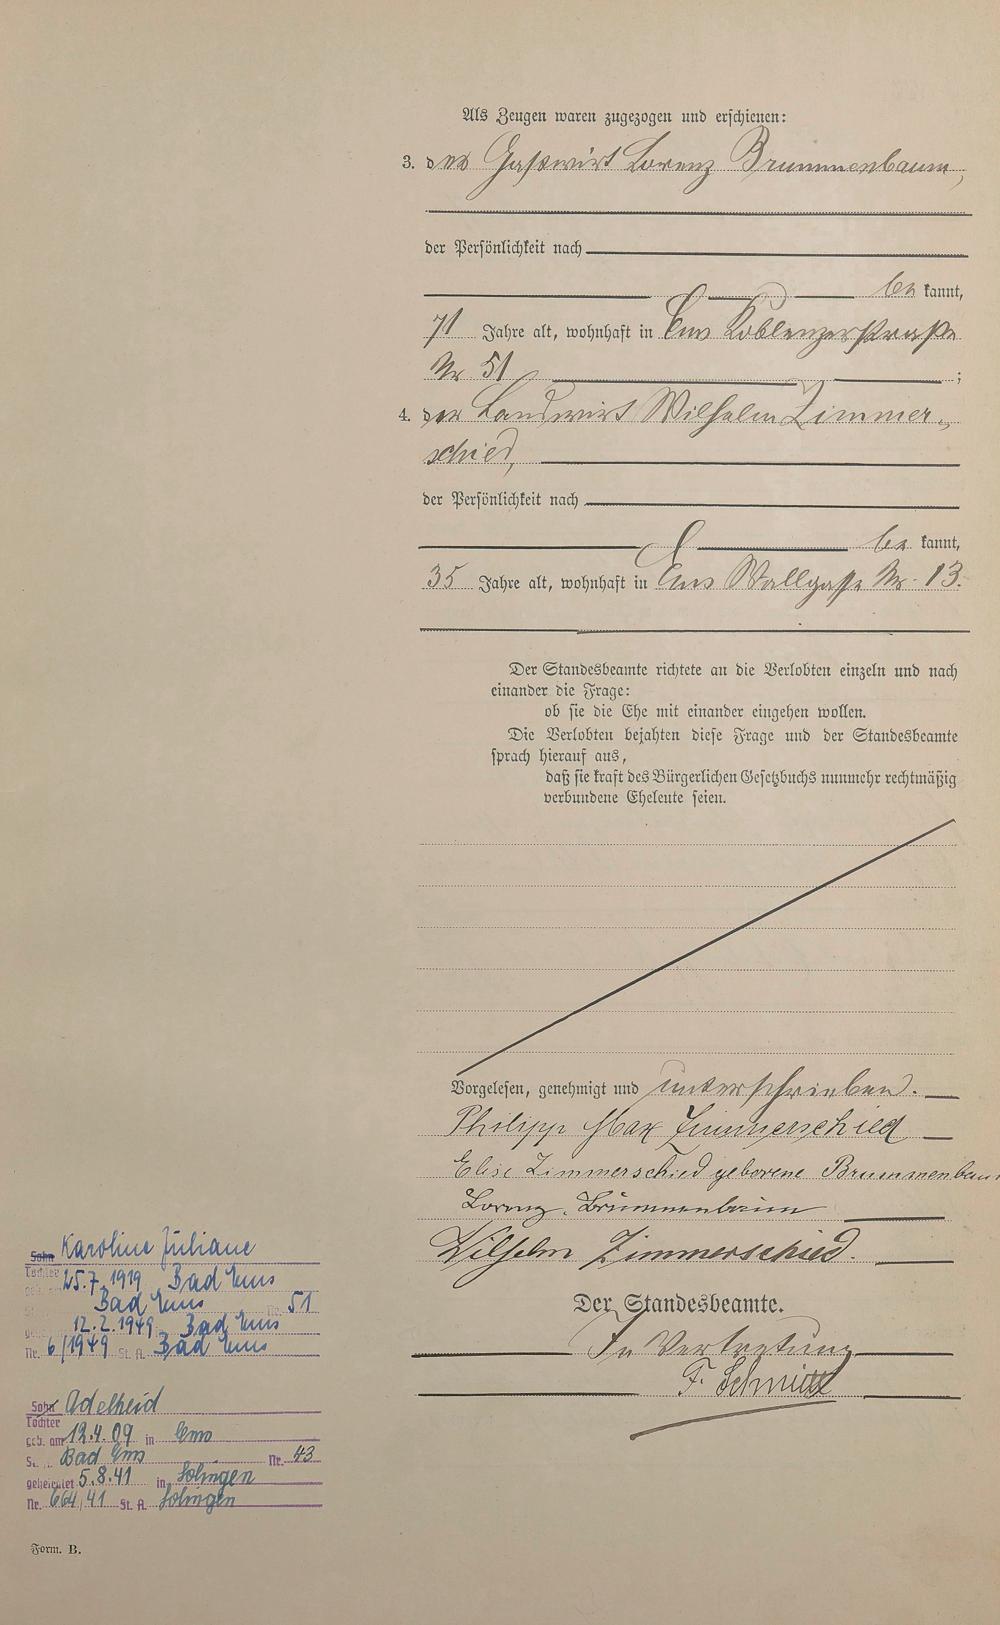 Als Zeugen waren zugezogen und erschienen:
3. der Gastwirt Lorenz Brummenbaum,
der Persönlichkeit nach
be kannt,
71 Jahre alt, wohnhaft in Ems Koblenzerstraße
Nr. 51 ;
4. der Landwirt Wilhelm Zimmer-
schied,
der Persönlichkeit nach
be kannt,
35 Jahre alt, wohnhaft in Ems Wallgasse Nr. 13.
Der Standesbeamte richtete an die Verlobten einzeln und nach
einander die Frage:
ob sie die Ehe mit einander eingehen wollen.
Die Verlobten bejahten diese Frage und der Standesbeamte
sprach hierauf aus,
daß sie kraft des Bürgerlichen Gesetzbuchs nunmehr rechtmäßig
verbundene Eheleute seien.
Vorgelesen, genehmigt und unterschrieben.
Philipp Max Zimmerschied
Elise Zimmerschied geborene Brummenbaum
Lorenz Brummenbaum
Wilhelm Zimmerschied.
Der Standesbeamte.
In Vertretung
F. Schmitt
Sohn Karoline Juliane
Tochter
geb. am 25.7.1919 Bad Ems
St. Bad Ems Nr. 51
12.2.1949 Bad Ems
Nr. 6/1949 St. A. Bad Ems
Sohn Adelheid
Tochter
geb. am 12.4.09 in Ems
St. Bad Ems Nr. 43
geheiratet 5.8.41 in Solingen
Nr. 664/41 St. A. Solingen
Form. B.